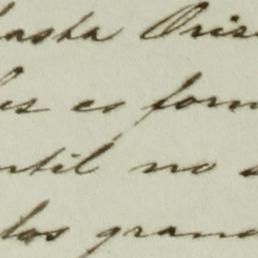 hasta Oris
les es form
ntil no s
los grand